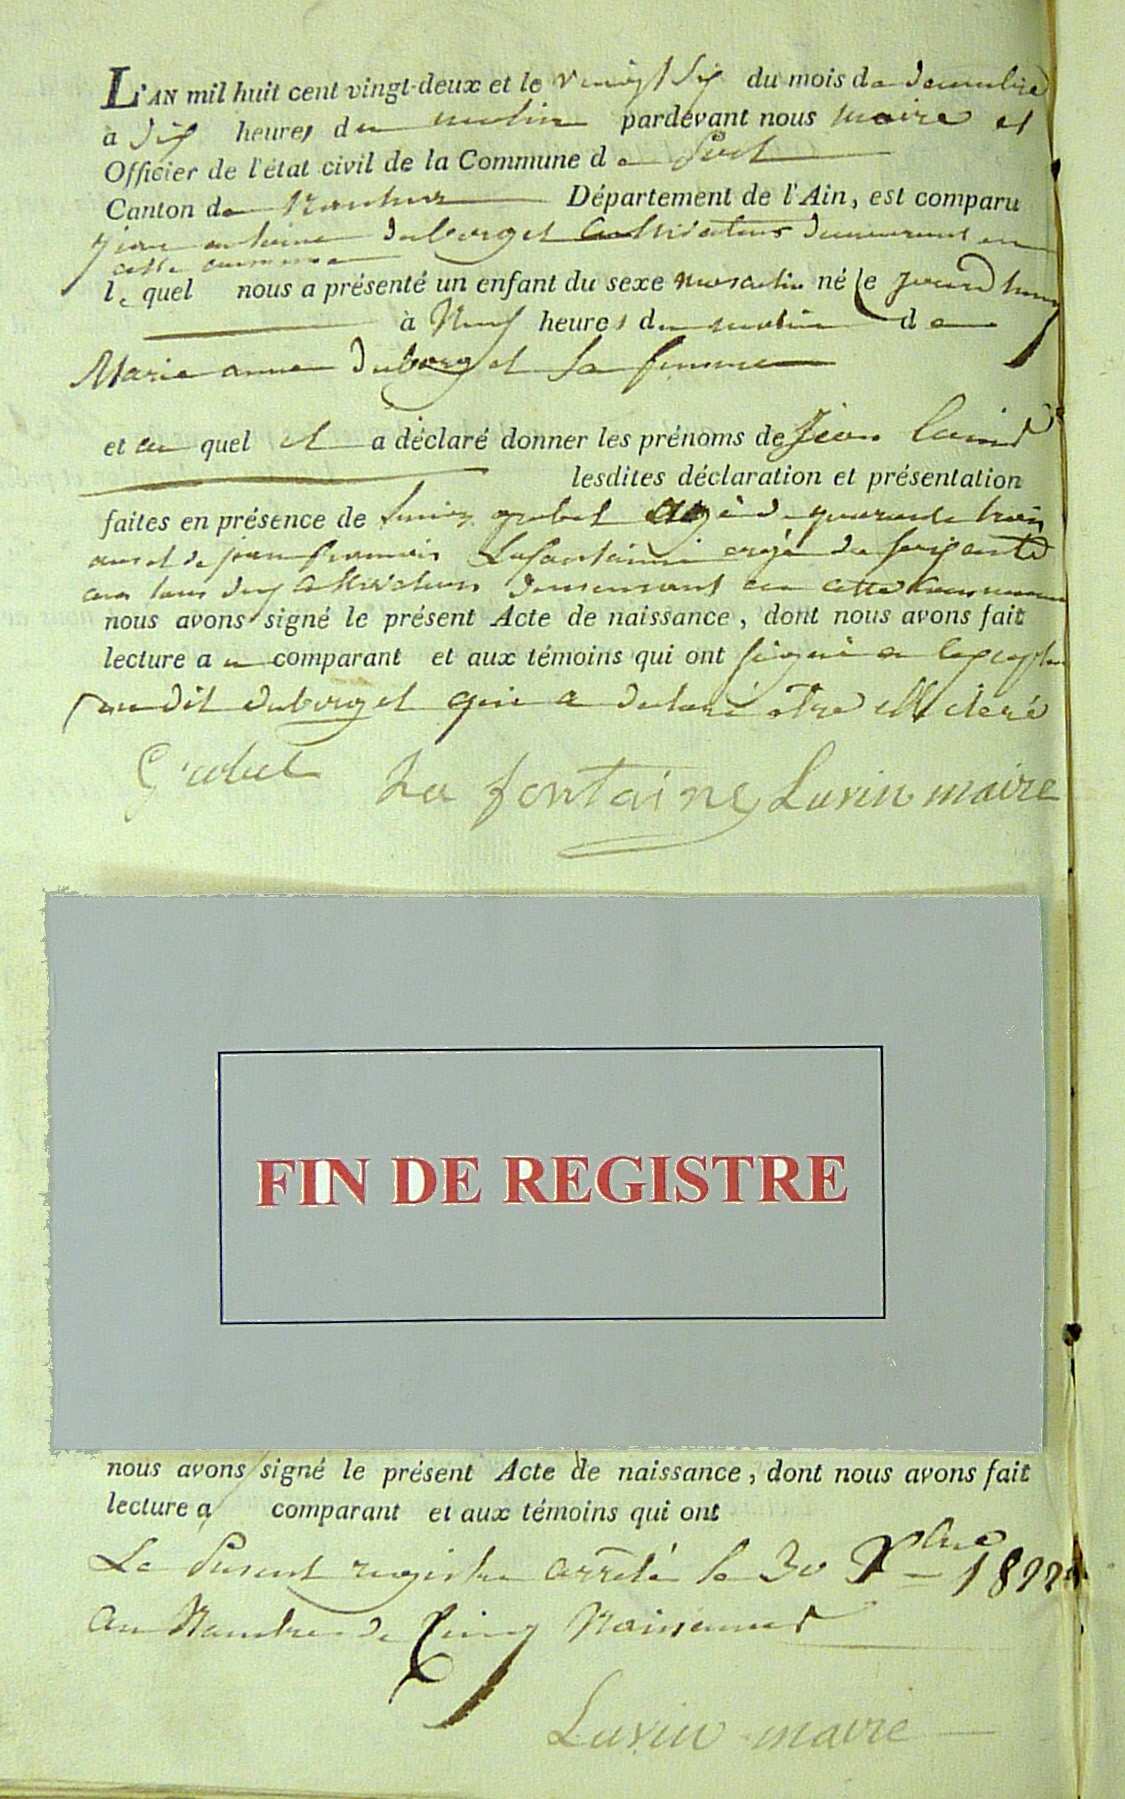 L'AN mil huit cent vingt-deux et le vingt six du mois de décembre
à dix heures du matin pardevant nous maire et
Officier de l'état civil de la Commune de Port
Canton de Nantua Département de l'Ain, est comparu
jean antoine duborget Cultivateur demeurant en
cette commune
lequel nous a présenté un enfant du sexe masculin né le jourd huy
à Neuf heures du matin de
Marie anne duborget sa femme
et au quel il a déclaré donner les prénoms de jean
lesdites déclaration et présentation
faites en présence de grobet agé de quarante trois
ans et de jean francois Lafontaine agé de soixante
ans tous deux cultivateurs demeurant en cette commune
nous avons signé le présent Acte de naissance, dont nous avons fait
lecture au comparant et aux témoins qui ont signé a
dit duborget qui a declaré etre illiteré
Grobet La fontaine Luvin maire
FIN DE REGISTRE
nous avons signé le présent Acte de naissance, dont nous avons fait
lecture a comparant et aux témoins qui ont
Le Present registre arrêté le 30 Xbre 1822
au Nombre de Cinq Naissances
Luvin maire